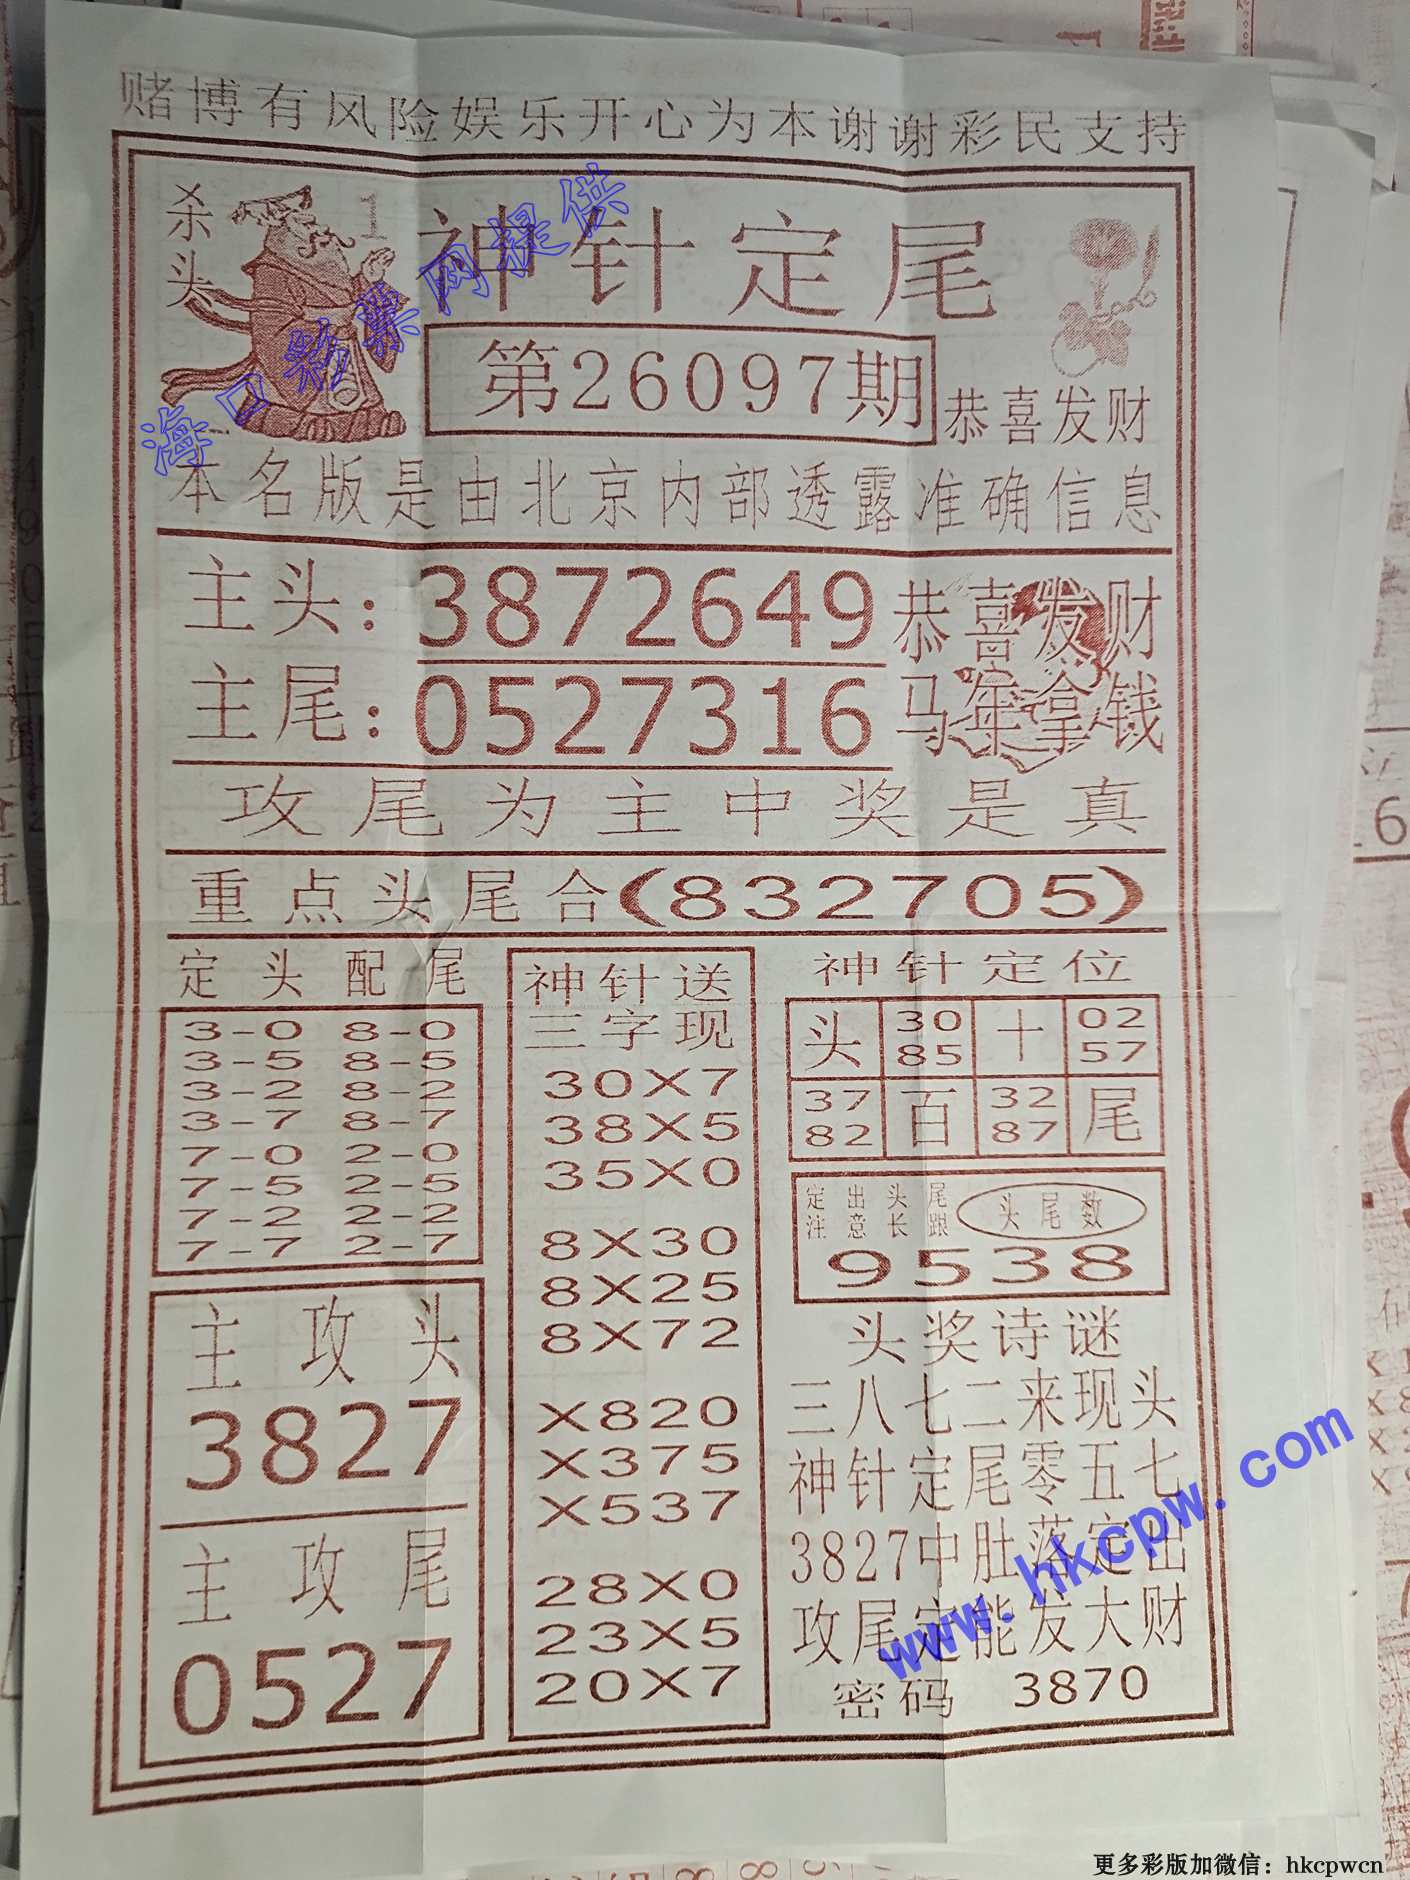 赌博有风险娱乐开心为本谢谢彩民支持
杀头
1
神针定尾
第26097期
恭喜发财
海口彩票网提供
本名版是由北京内部透露准确信息
主头：3872649
恭喜发财
主尾：0527316
马年拿钱
攻尾为主中奖是真
重点头尾合(832705)
定头配尾
3-0 8-0
3-5 8-5
3-2 8-2
3-7 8-7
7-0 2-0
7-5 2-5
7-2 2-2
7-7 2-7
主攻头
3827
主攻尾
0527
神针送
三字现
30X7
38X5
35X0
8X30
8X25
8X72
X820
X375
X537
28X0
23X5
20X7
神针定位
头 30 十 02
85 57
37 百 32 尾
82 87
定出头尾
注意长跟
头尾数
9538
头奖诗谜
三八七二来现头
神针定尾零五七
3827中肚落定出
攻尾定能发大财
密码 3870
www.hkcpw.com
更多彩版加微信：hkcpwcn